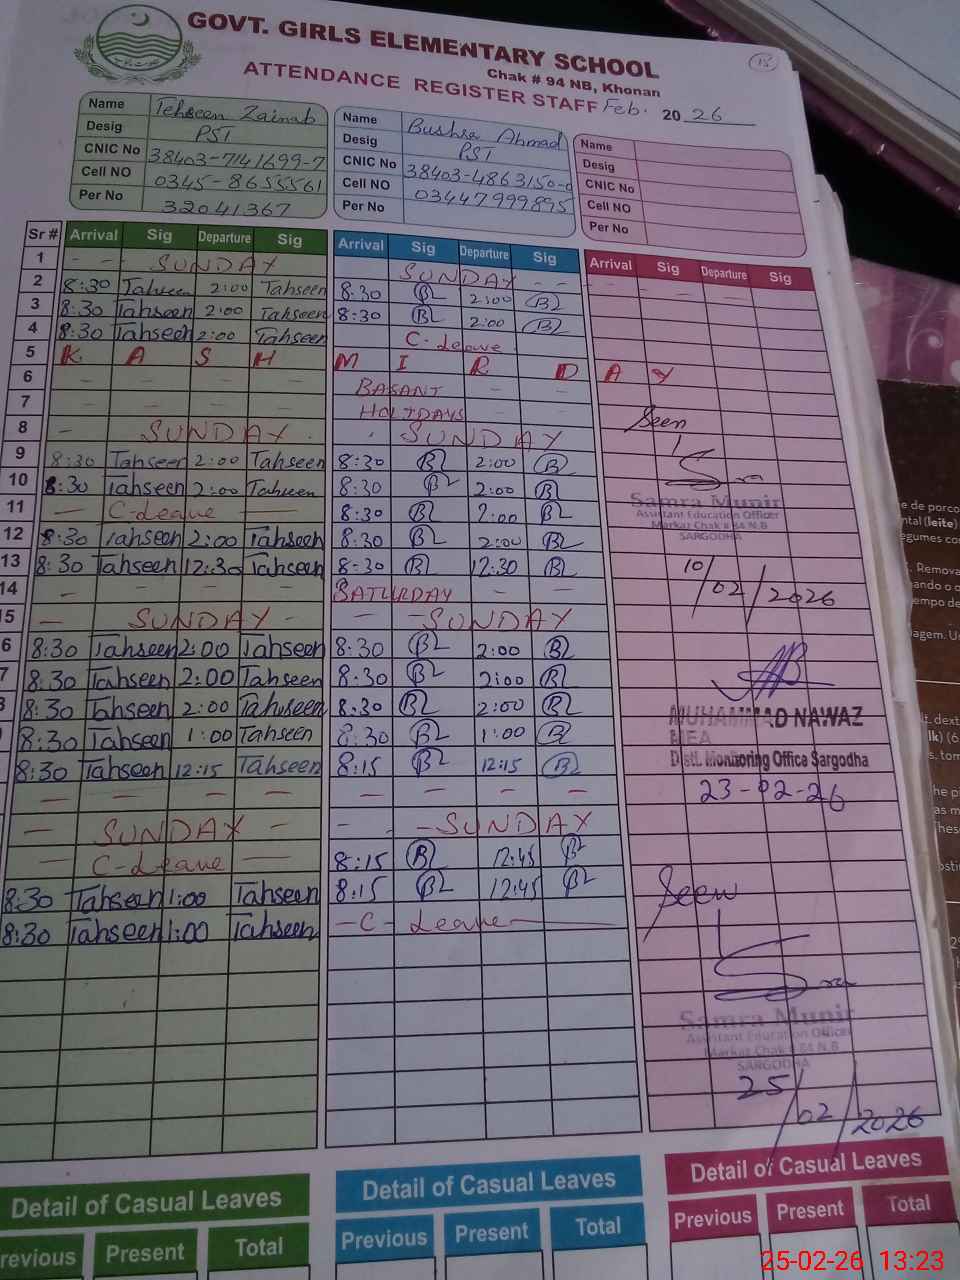 GOVT. GIRLS ELEMENTARY SCHOOL
Chak # 94 NB, Khonan
ATTENDANCE REGISTER STAFF Feb. 20 26
15
Name Tehseen Zainab
Desig PST
CNIC No 38403-7141699-7
Cell NO 0345-8653561
Per No 32041367
Name Bushra Ahmad
Desig PST
CNIC No 38403-4863150-0
Cell NO 03447999895
Per No
Name
Desig
CNIC No
Cell NO
Per No
Sr # Arrival Sig Departure Sig Arrival Sig Departure Sig Arrival Sig Departure Sig
1 - - SUNDAY SUNDAY - -
2 8:30 Tahseen 2:00 Tahseen 8:30 BL 2:00 BL
3 8:30 Tahseen 2:00 Tahseen 8:30 BL 2:00 BL
4 8:30 Tahseen 2:00 Tahseen C-Leave
5 K A S H M I R D A Y
6 - - - - BASANT - -
7 - - - - HOLIDAYS - -
8 - SUNDAY SUNDAY
9 8:30 Tahseen 2:00 Tahseen 8:30 BL 2:00 BL
10 8:30 Tahseen 2:00 Tahseen 8:30 BL 2:00 BL
11 - C-Leave - 8:30 BL 2:00 BL
12 8:30 Tahseen 2:00 Tahseen 8:30 BL 2:00 BL
13 8:30 Tahseen 12:30 Tahseen 8:30 BL 12:30 BL
14 - - - - SATURDAY - -
15 - SUNDAY - - - SUNDAY
6 8:30 Tahseen 2:00 Tahseen 8:30 BL 2:00 BL
7 8:30 Tahseen 2:00 Tahseen 8:30 BL 2:00 BL
8:30 Tahseen 2:00 Tahseen 8:30 BL 2:00 BL
8:30 Tahseen 1:00 Tahseen 8:30 BL 1:00 BL
8:30 Tahseen 12:15 Tahseen 8:15 BL 12:15 BL
- - - - - - - -
- SUNDAY - - - SUNDAY
- C-Leave - 8:15 BL 12:45 BL
8:30 Tahseen 1:00 Tahseen 8:15 BL 12:45 BL
8:30 Tahseen 1:00 Tahseen -C- Leave
Seen
Samra Munir
Assistant Education Officer
Markaz Chak # 84 N.B
SARGODHA
10/02/2026
MUHAMMAD NAWAZ
MEA
Distt. Monitoring Office Sargodha
23-02-26
Seen
Samra Munir
Assistant Education Officer
Markaz Chak # 84 N.B
SARGODHA
25/02/2026
Detail of Casual Leaves
revious Present Total
Detail of Casual Leaves
Previous Present Total
Detail of Casual Leaves
Previous Present Total
e de porco
ntal (leite)
egumes co
. Remova
ando o o
empo de
lagem. U
t. dext
lk) (6
s, tom
25-02-26 13:23